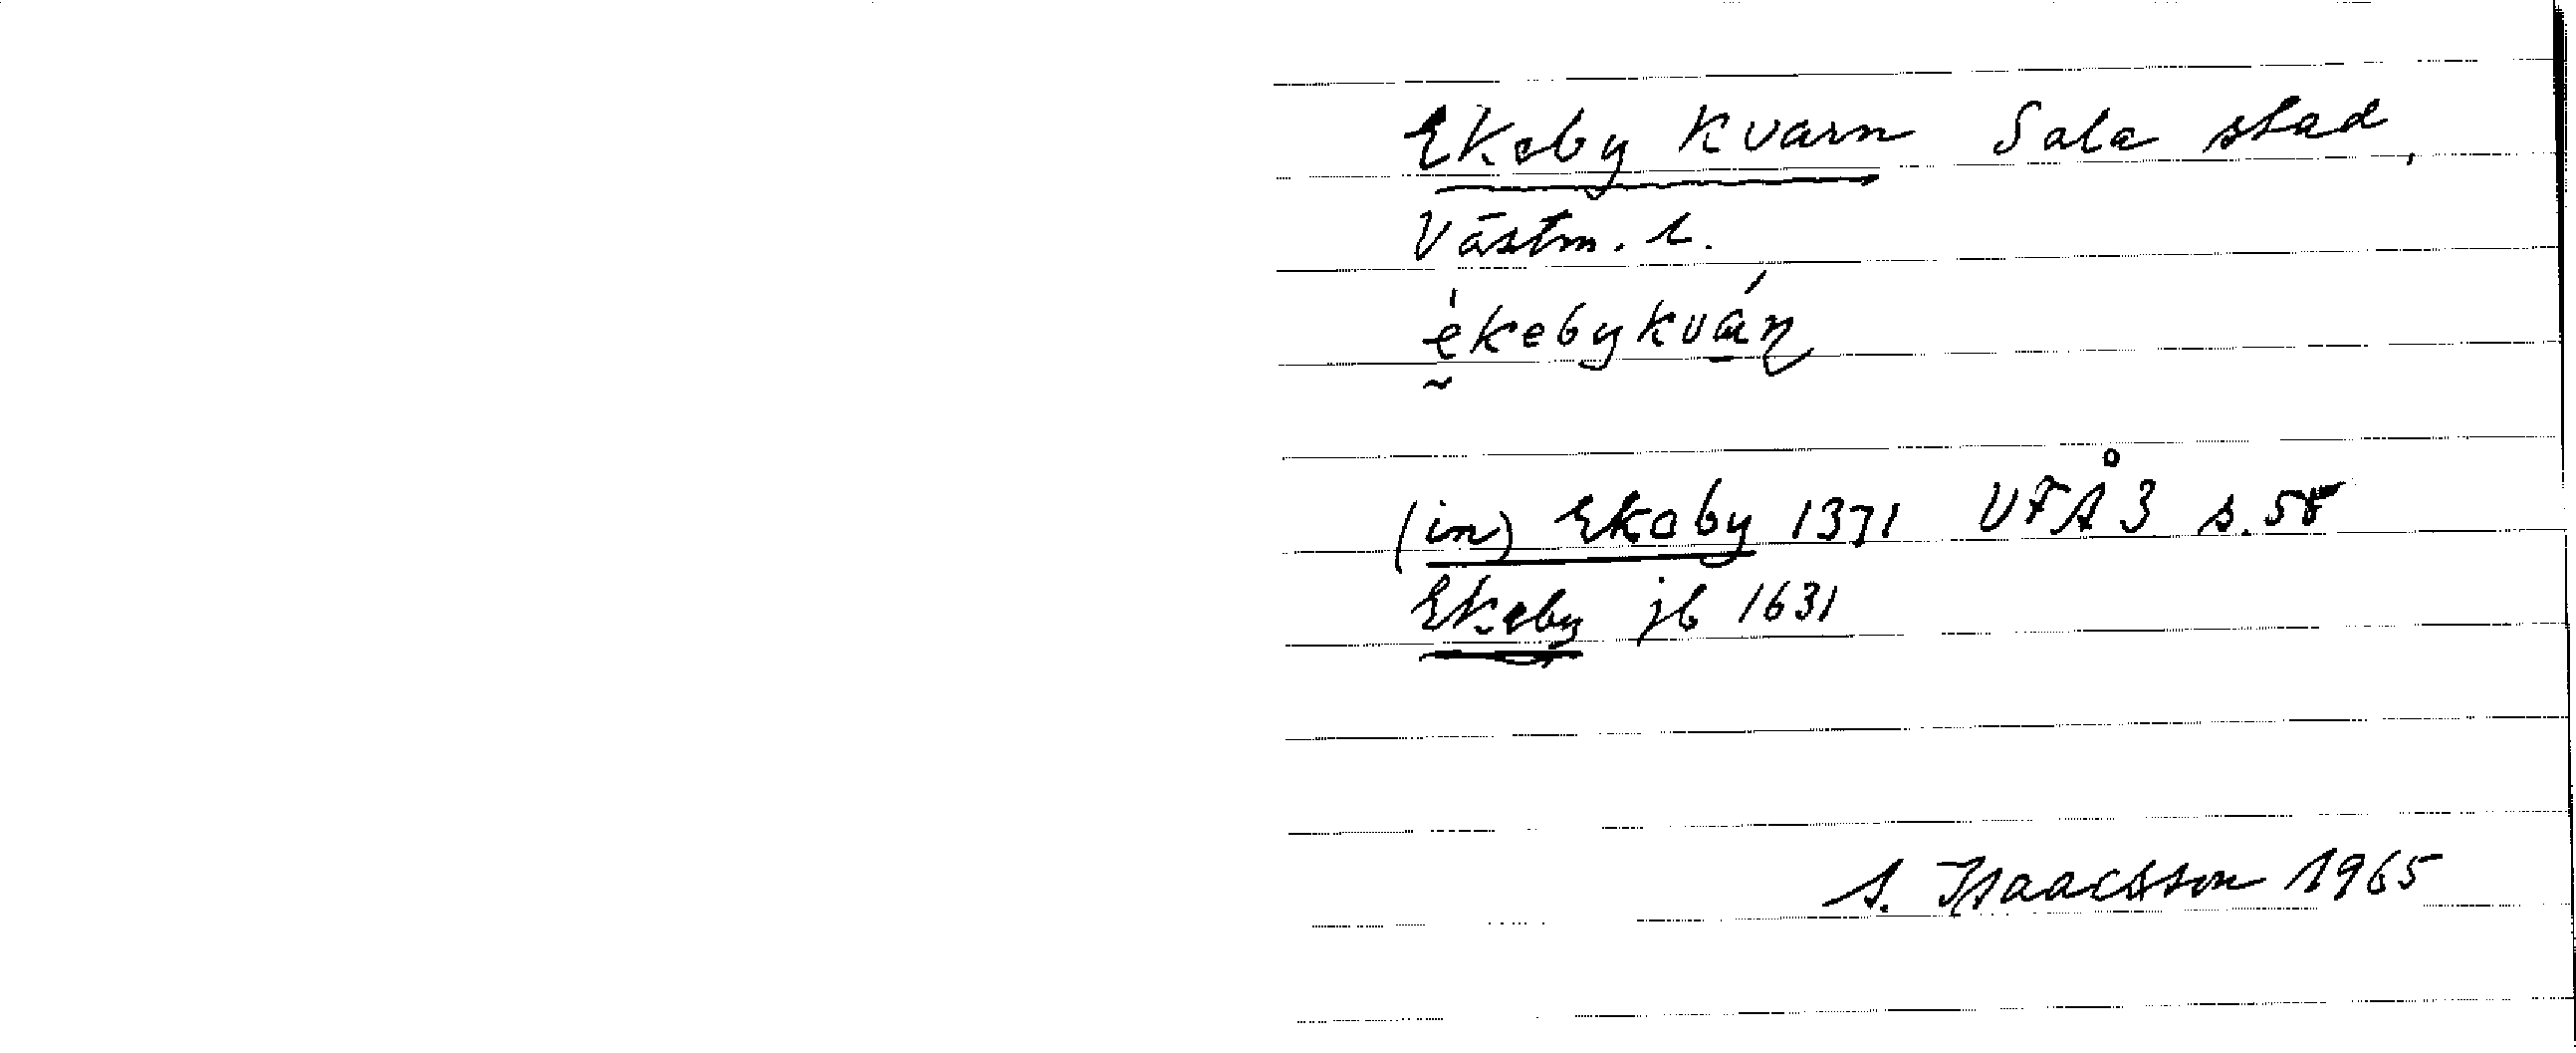 Ekeby kvarn Sala stad,
Västm. l.
èkebykván
(in) Ekeby 1371 VFÅ 3 s. 58
Ekeby jb 1631
S. Isaacsson 1965